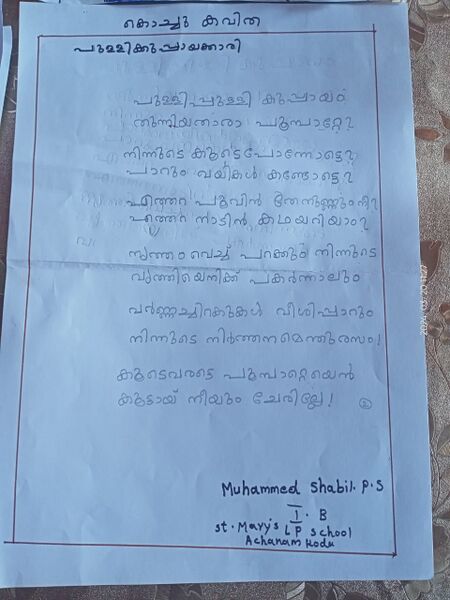 കൊച്ചു കവിത
പുള്ളിക്കുപ്പായക്കാരി
പുള്ളിപ്പുള്ളി കുപ്പായം
തുന്നിയതാരാ പൂമ്പാറ്റേ?
നിന്നുടെ കൂടെപോന്നോട്ടെ?
പാറും വഴികൾ കണ്ടോട്ടെ?
എത്തറ പൂവിൻ തേനുണ്ണുംനീ?
എത്തറ നാടിൻ കഥയറിയാം?
നൃത്തം വെച്ച് പറക്കും നിന്നുടെ
വൃത്തിയെനിക്ക് പകർന്നാലും
വർണ്ണച്ചിറകുകൾ വീശിപ്പാറും
നിന്നുടെ നിർത്തനമെന്തുരസം!
കൂടെവരട്ടെ പൂമ്പാറ്റെയെൻ
കൂട്ടായ് നീയും ചേരില്ലേ!
Muhammed Shabil. P. S
I. B
St. Mary's L P School
Achanam Kodu